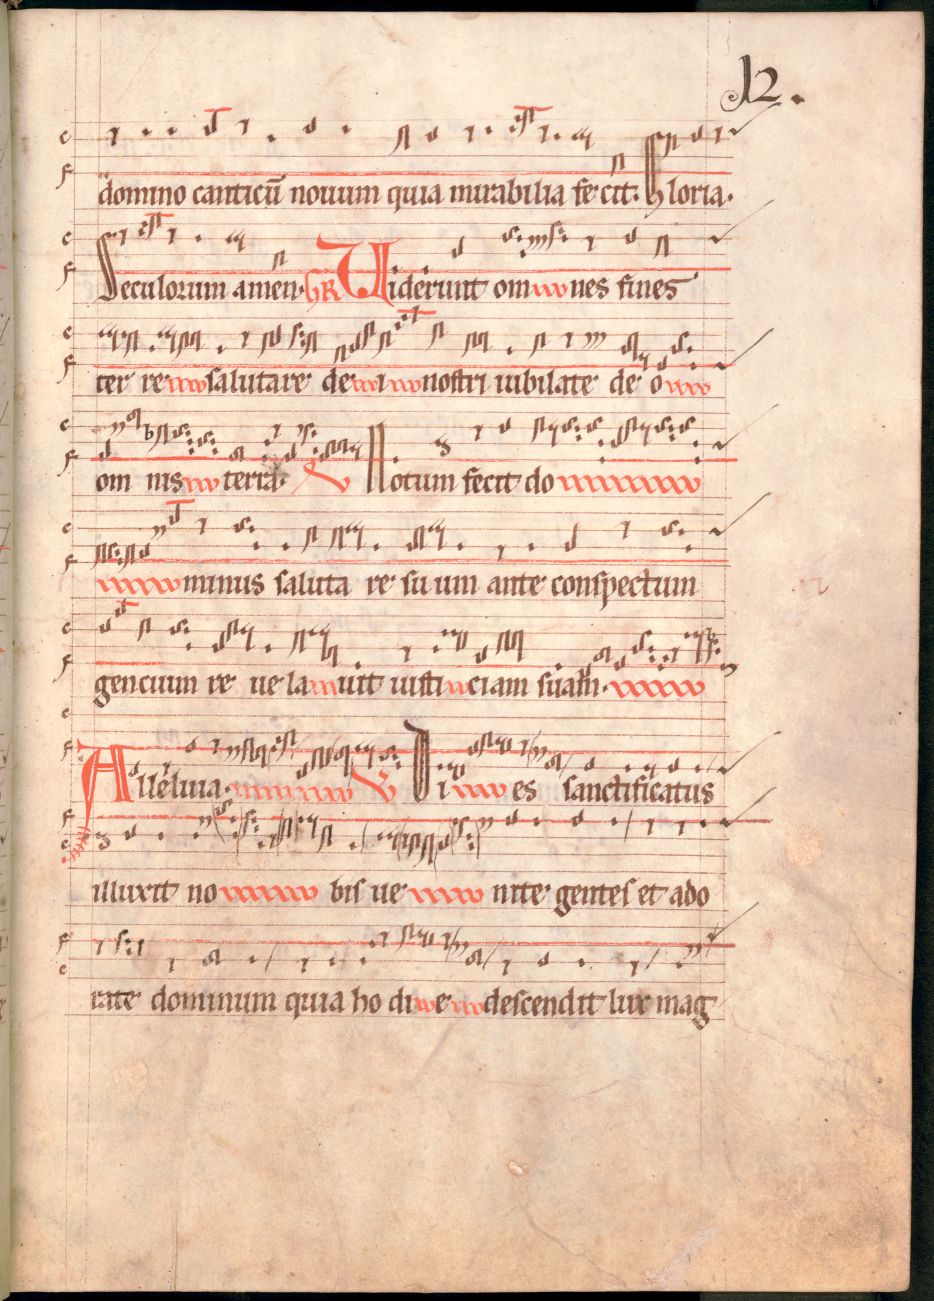 12.
domino canticū novum quia mirabilia fe cit. Gloria.
Seculorum amen. GR Viderunt om nes fines
ter re salutare de i nostri iubilate de o
om nis terra. V Notum fecit do
minus saluta re su um ante conspectum
gencium re ve la vit iusti ciam suam.
Alleluia. V Di es sanctificatus
illuxit no bis ve nite gentes et ado
rate dominum quia ho di e descendit lux mag